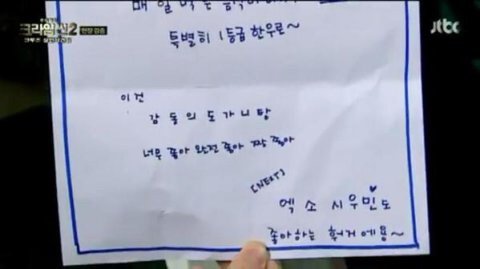 크라임 씬2
현장검증
jtbc
매일 먹는
특별히 1등급 한우로~
이건
감동의 도가니탕
너무 좋아 완전 좋아 짱 좋아
[NEXT]
엑소 시우민도
좋아하는 헐거에용~